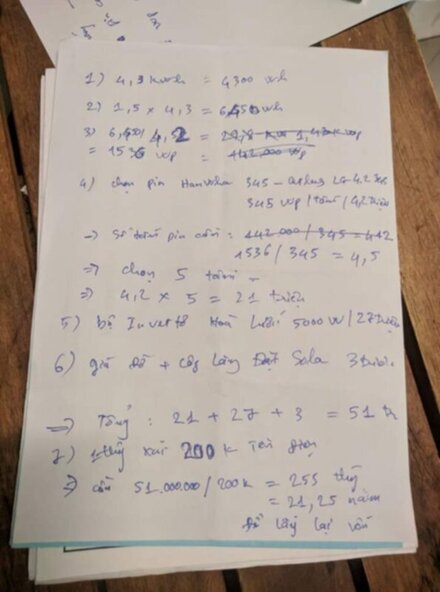 1) 4,3 kwh = 4300 wh
2) 1,5 x 4,3 = 6450 wh
3) 6,450/ 4,2 =
= 1536 wp =
4) chọn pin Hanwha 345 - 4,2
345 wp/tấm/4,2 triệu
→ Số tấm pin cần: 142.000/345 = 412
1536/345 = 4,5
⇒ chọn 5 tấm
⇒ 4,2 x 5 = 21 triệu
5) bộ Inverter Hoà lưới 5000W/27triệu
6) giá đỡ + công lắp Đặt Sola 3triệu
⇒ Tổng: 21 + 27 + 3 = 51 tr
7) 1 thg xài 200 k Tiền điện
⇒ cần 51.000.000/200k = 255 thg
= 21,25 năm
để lấy lại vốn